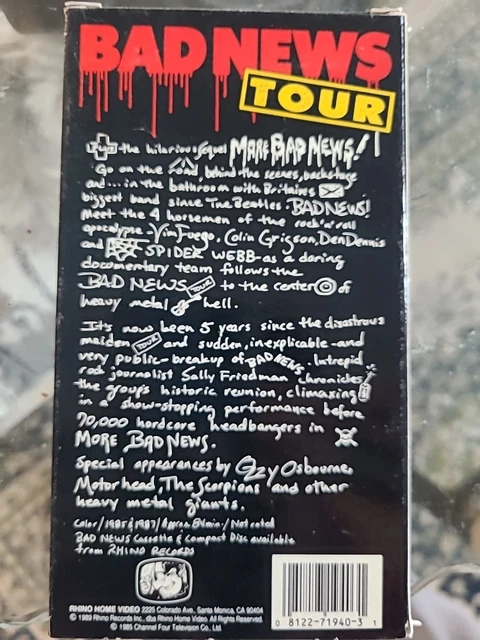 BAD NEWS
TOUR
Plus the hilarious sequel MORE BAD NEWS!
Go on the road, behind the scenes, backstage
and...in the bathroom with Britain's
biggest band since The Beatles. BAD NEWS!
Meet the 4 horsemen of the rock'n'roll
apocalypse-Vim Fuego, Colin Grigson, Den Dennis
and SPIDER WEBB-as a daring
documentary team follows the
BAD NEWS TOUR to the center of
heavy metal hell.
It's now been 5 years since the disastrous
maiden TOUR and sudden, inexplicable-and
very public-breakup of BAD NEWS. Intrepid
rock journalist Sally Friedman chronicles
the group's historic reunion, climaxing
in a show-stopping performance before
70,000 hardcore headbangers in
MORE BAD NEWS.
Special appearances by Ozzy Osbourne,
Motorhead, The Scorpions and other
heavy metal giants.
Color/1985 & 1987/Approx. /Not rated
BAD NEWS Cassette & Compact Disc available
from RHINO RECORDS
RHINO HOME VIDEO 2225 Colorado Ave., Santa Monica, CA 90404
© 1989 Rhino Records Inc., dba Rhino Home Video. All Rights Reserved.
© 1985 Channel Four Television Co., Ltd.
0 8122-71940-3 1